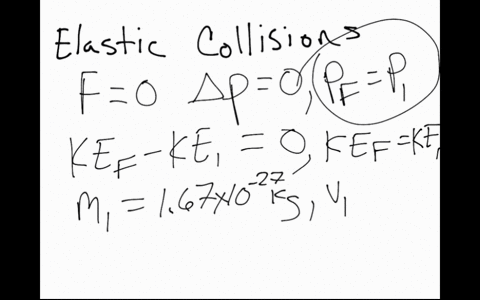 Elastic Collisions
F=0 Δp=0, P_F=P_1
KE_F-KE_1=0, KE_F=KE_1
m_1=1.67x10^-27 kg, V_1